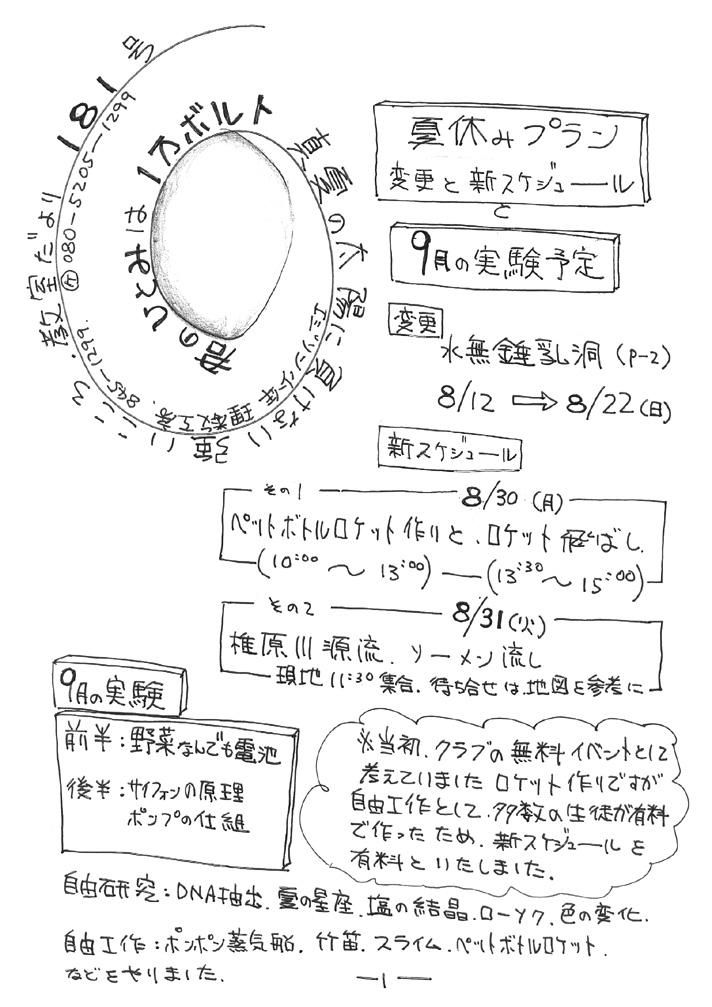 教室だより 181号
㋘ 080-5205-1299
845-1299.
エミソン少年理教工房.
君のひとみは 1万ボルト
真夏の太陽に負けない 強いこころ.
夏休みプラン
変更と新スケジュール
と
9月の実験予定
変更
水無鍾乳洞 (P-2)
8/12 ⇨ 8/22(日)
新スケジュール
その1 8/30 (月)
ペットボトルロケット作りと、ロケット飛ばし.
(10:00 〜 13:00) (13:30 〜 15:00)
その2 8/31(火)
椎原川源流. ソーメン流し
現地11:30集合. 待ち合せは地図を参考に
9月の実験
前半:野菜なんでも電池
後半:サイフォンの原理
ポンプの仕組
※当初. クラブの無料イベントとして
考えていました ロケット作りですが
自由工作として. 多数の生徒が有料
で作ったため. 新スケジュールを
有料といたしました.
自由研究:DNA抽出. 夏の星座. 塩の結晶. ローソク. 色の変化.
自由工作:ポンポン蒸気船. 竹笛. スライム. ペットボトルロケット.
などをやりました.
―1―